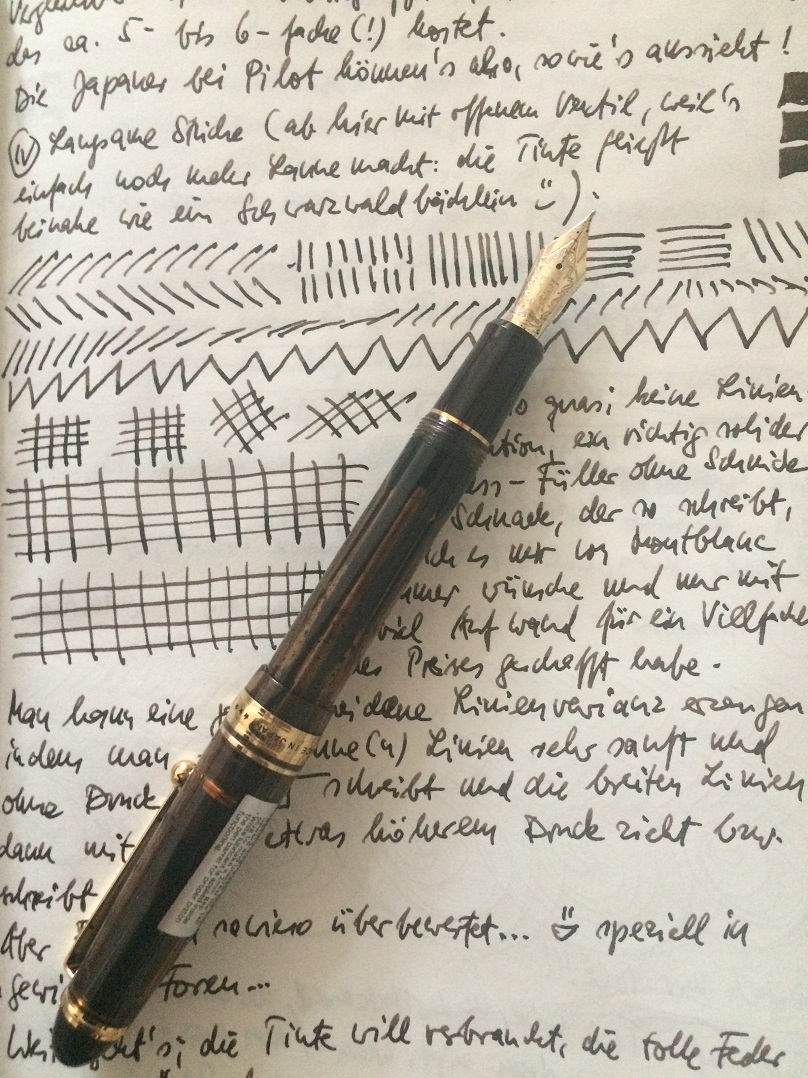 des ca. 5- bis 6-fache(!) kostet.
Die Japaner bei Pilot können's also, so wie's aussieht!
(IV) Langsame Striche (ab hier mit offenem Ventil, weil's
einfach noch mehr Laune macht: die Tinte fließt
beinahe wie ein Schwarzwaldbächlein ).
quasi keine Linien
ein richtig solider
Füller ohne Schnick
Schnack, der so schreibt,
ich es mir von Montblanc
immer wünsche und nur mit
viel Aufwand für ein Vielfache
des Preises geschafft habe.
Man kann eine Linienvarianz erzeugen
indem man Linien sehr sanft und
ohne Druck schreibt und die breiten Linien
dann mit etwas höherem Druck zieht bzw.
schreibt
Aber sowieso überbewertet... speziell in
Foren...
Weiter geht's; die Tinte will verbraucht, die tolle Feder
MADE IN JAPAN